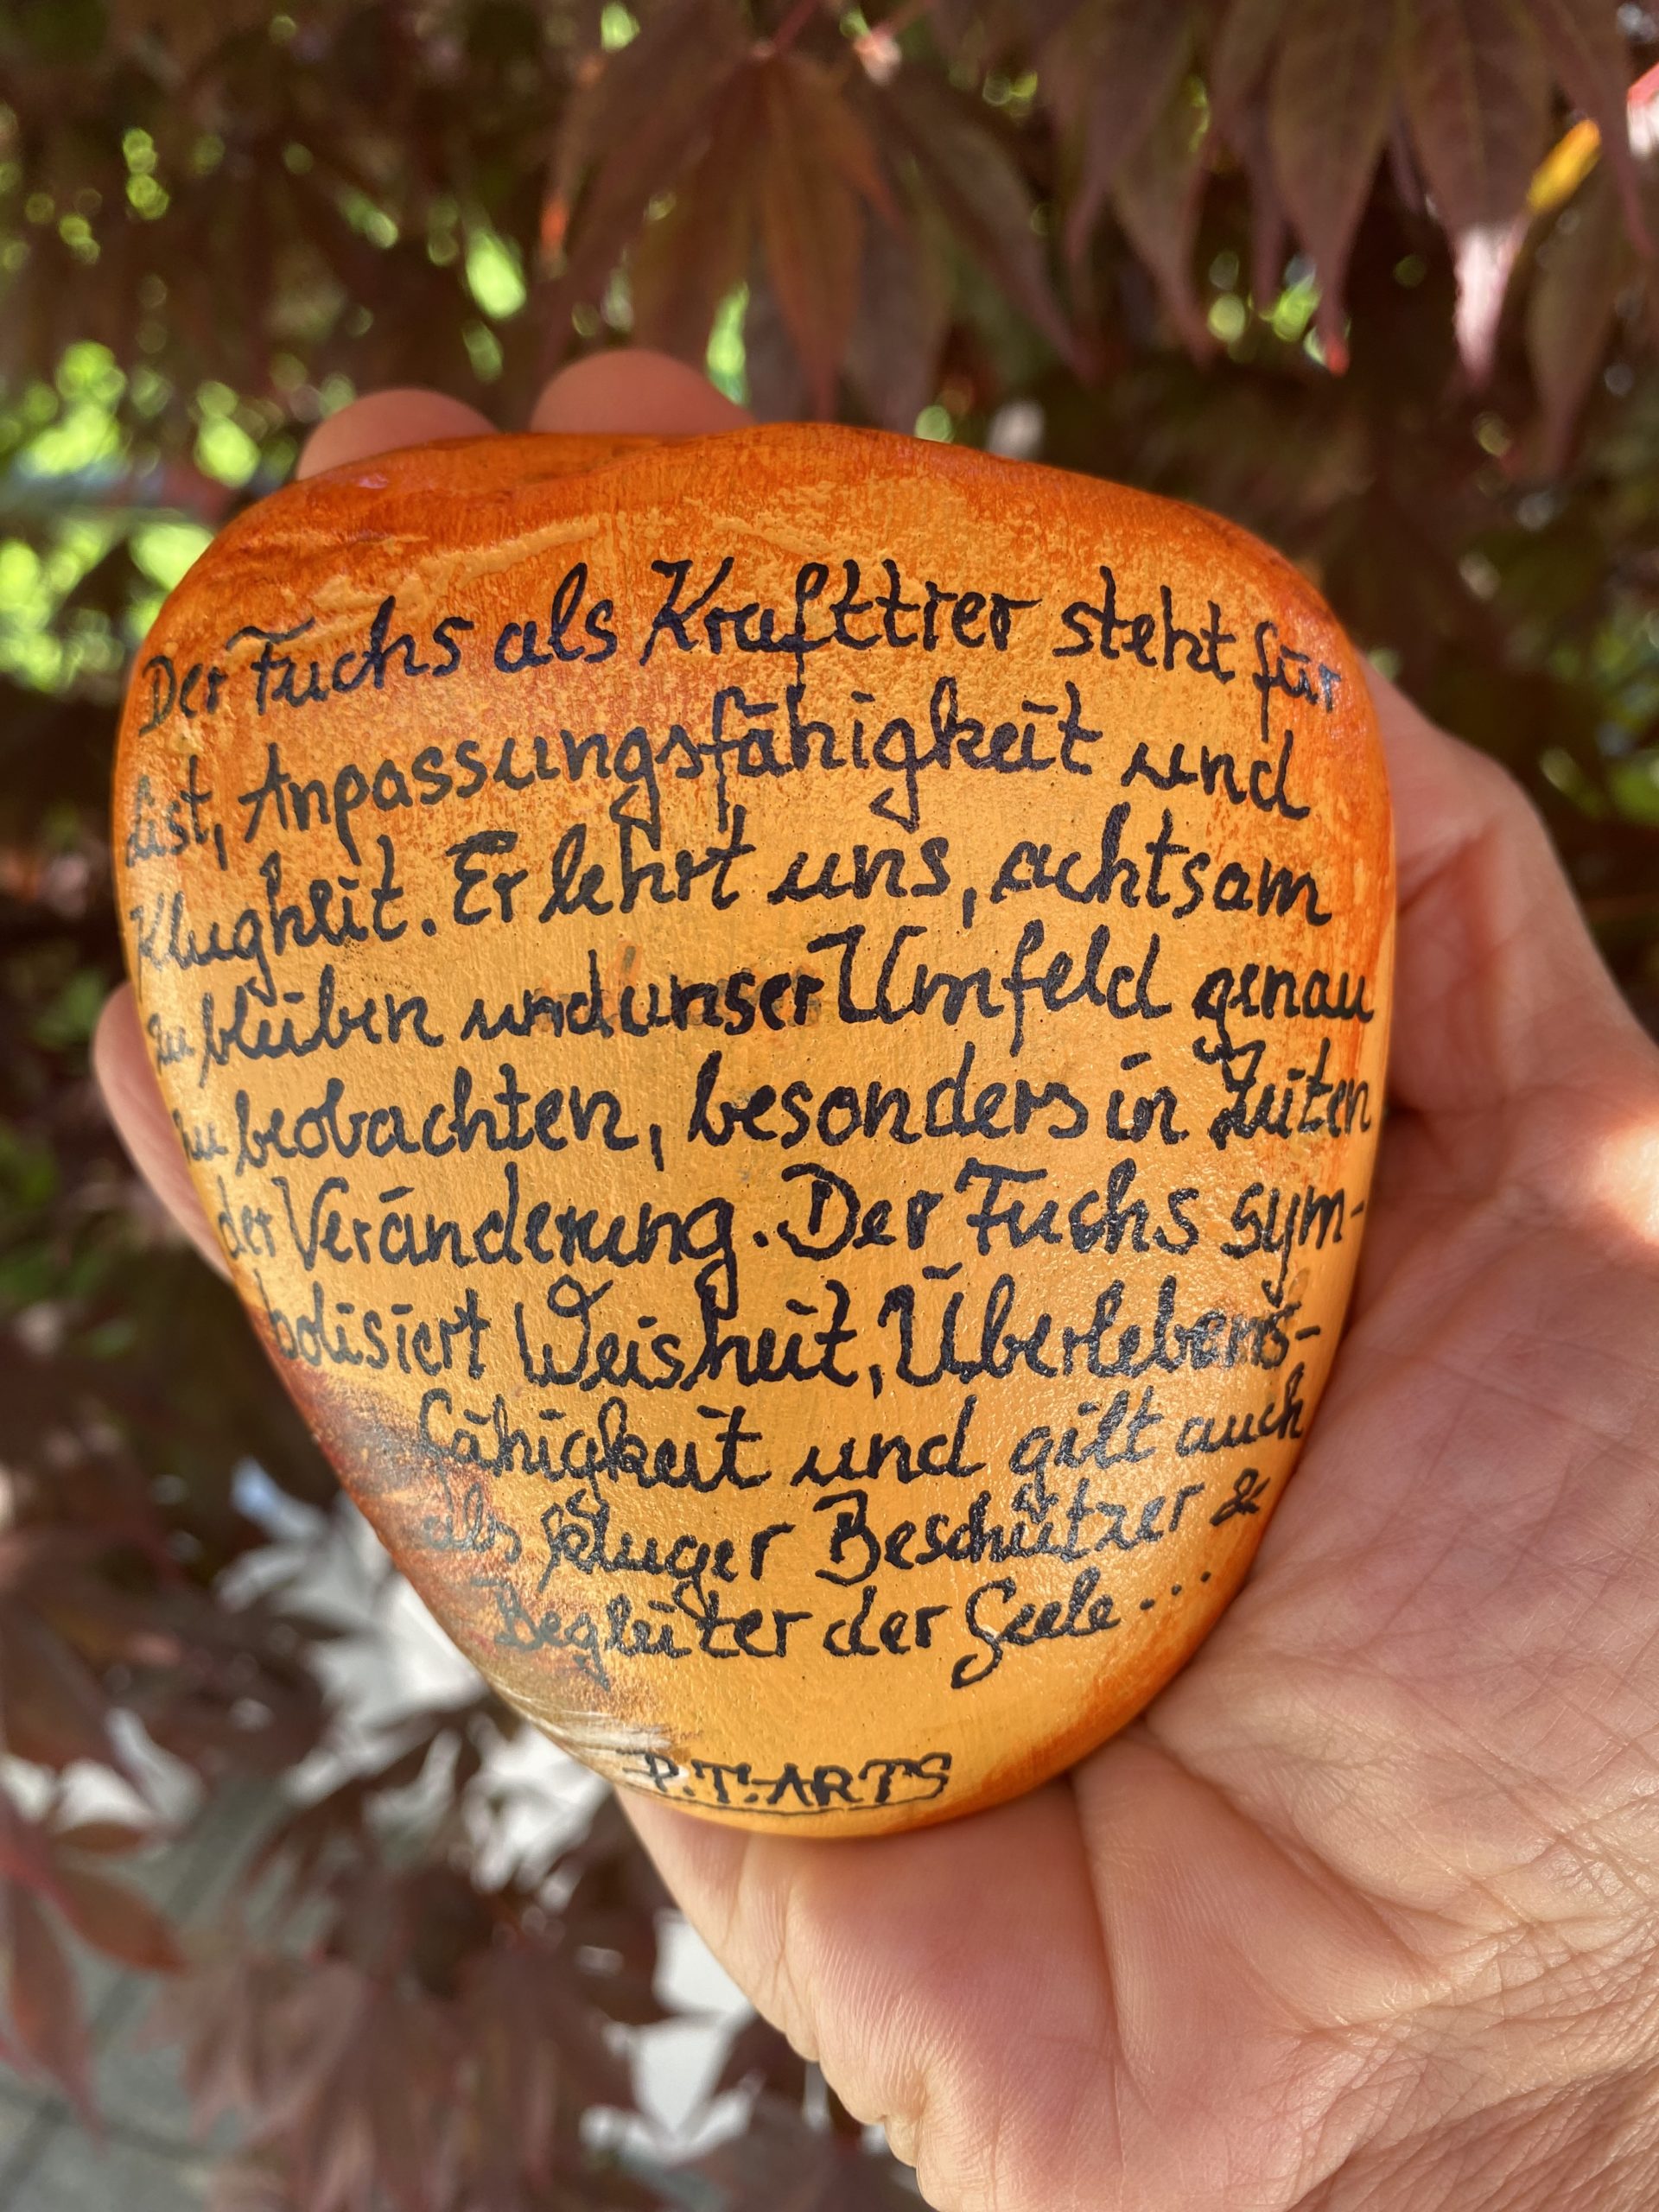 Der Fuchs als Krafttier steht für
List, Anpassungsfähigkeit und
Klugheit. Er lehrt uns, achtsam
zu bleiben und unser Umfeld genau
zu beobachten, besonders in Zeiten
der Veränderung. Der Fuchs sym-
bolisiert Weisheit, Überlebens-
fähigkeit und gilt auch
als kluger Beschützer &
Begleiter der Seele...
P.T.ARTS